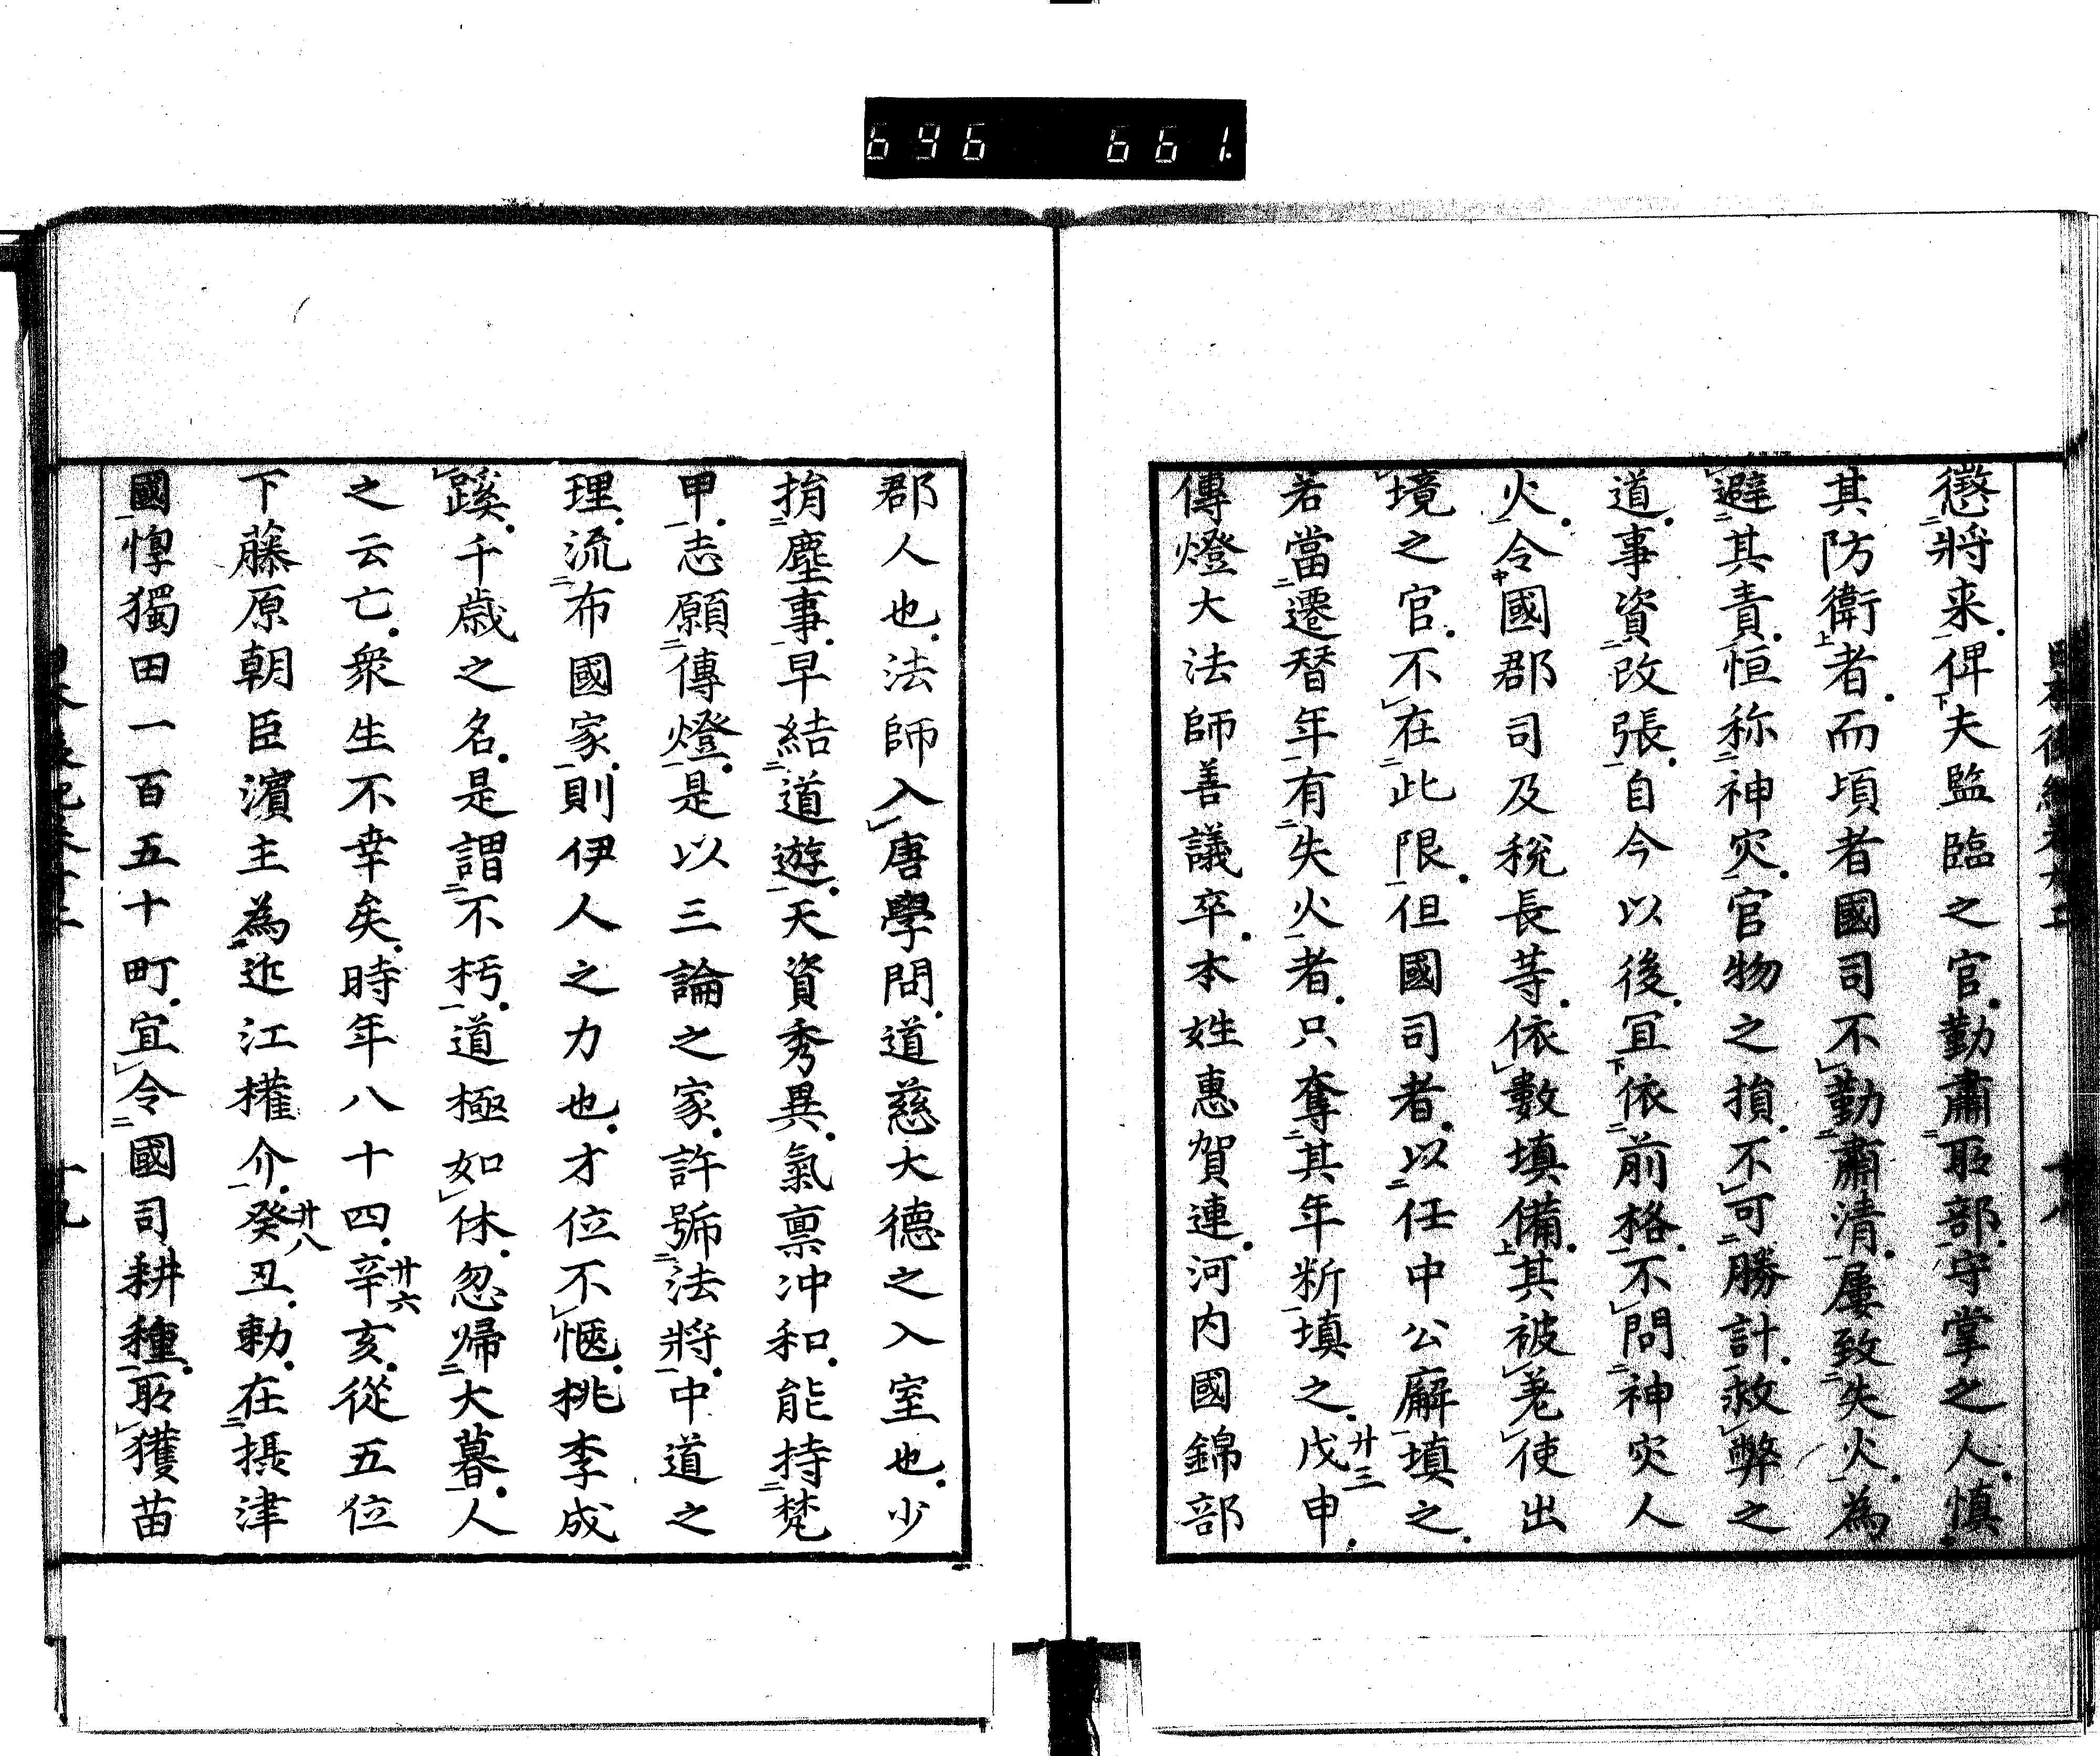 696 661
懲將来俾夫監臨之官勤肅所部守掌之人慎
其防衛者而頃者國司不勤肅清屡致失火為
避其責恒称神灾官物之損不可勝計救弊之
道事資改張自今以後冝依前格不問神灾人
火令國郡司及税長等依數填備其被差使出
境之官不在此限但國司者以任中公廨填之
若當遷替年有失火者只奪其年断填之戊申
廿三
傳燈大法師善議卒本姓惠賀連河内國錦部
十八
郡人也法師入唐學問道慈大德之入室也少
捐塵事早結道遊天資秀異氣禀冲和能持梵
甲志願傳燈是以三論之家許號法將中道之
理流布國家則伊人之力也才位不愜桃李成
蹊千歳之名是謂不朽道極如休忽歸大暮人
之云亡衆生不幸矣時年八十四辛亥從五位
廿六
下藤原朝臣濱主為近江權介癸丑勅在摂津
廿八
國惸獨田一百五十町宜令國司耕種所獲苗
十九